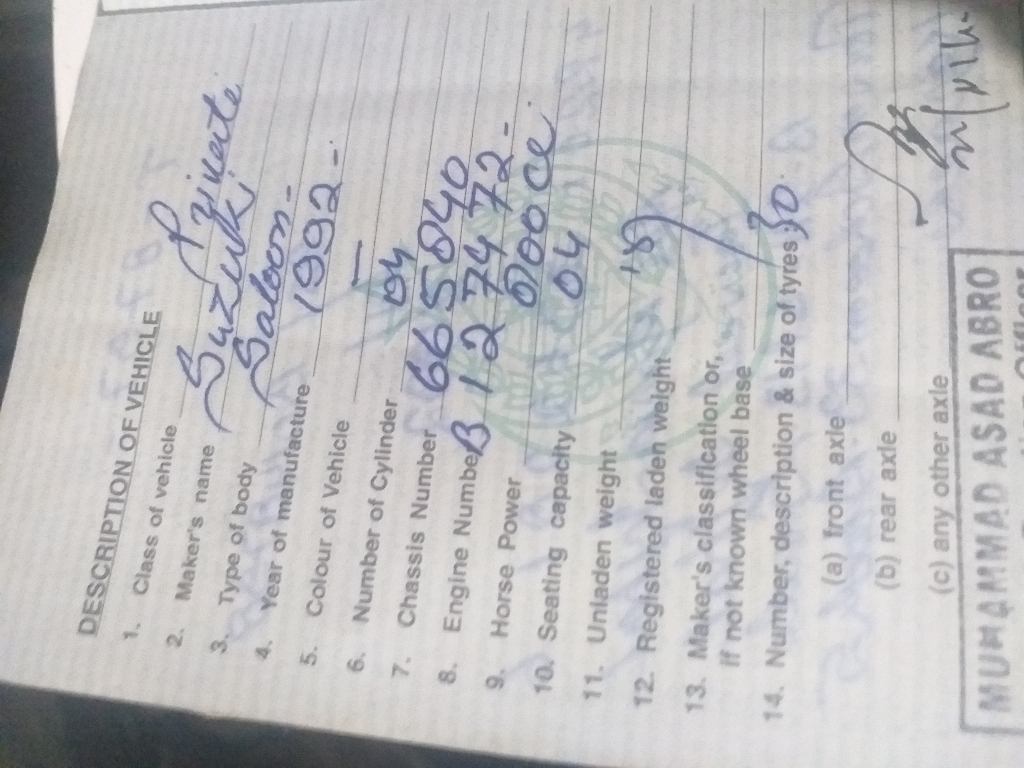 DESCRIPTION OF VEHICLE
1. Class of vehicle Private
2. Maker's name Suzuki
3. Type of body Saloon -
4. Year of manufacture 1992 -
5. Colour of Vehicle —
6. Number of Cylinder 04
7. Chassis Number 665040
8. Engine Number B 1 2 74 72 -
9. Horse Power
10. Seating capacity 04
11. Unladen weight
12. Registered laden weight
13. Maker's classification or,
If not known wheel base
14. Number, description & size of tyres:
(a) front axle
(b) rear axle
(c) any other axle
MUHAMMAD ASAD ABRO